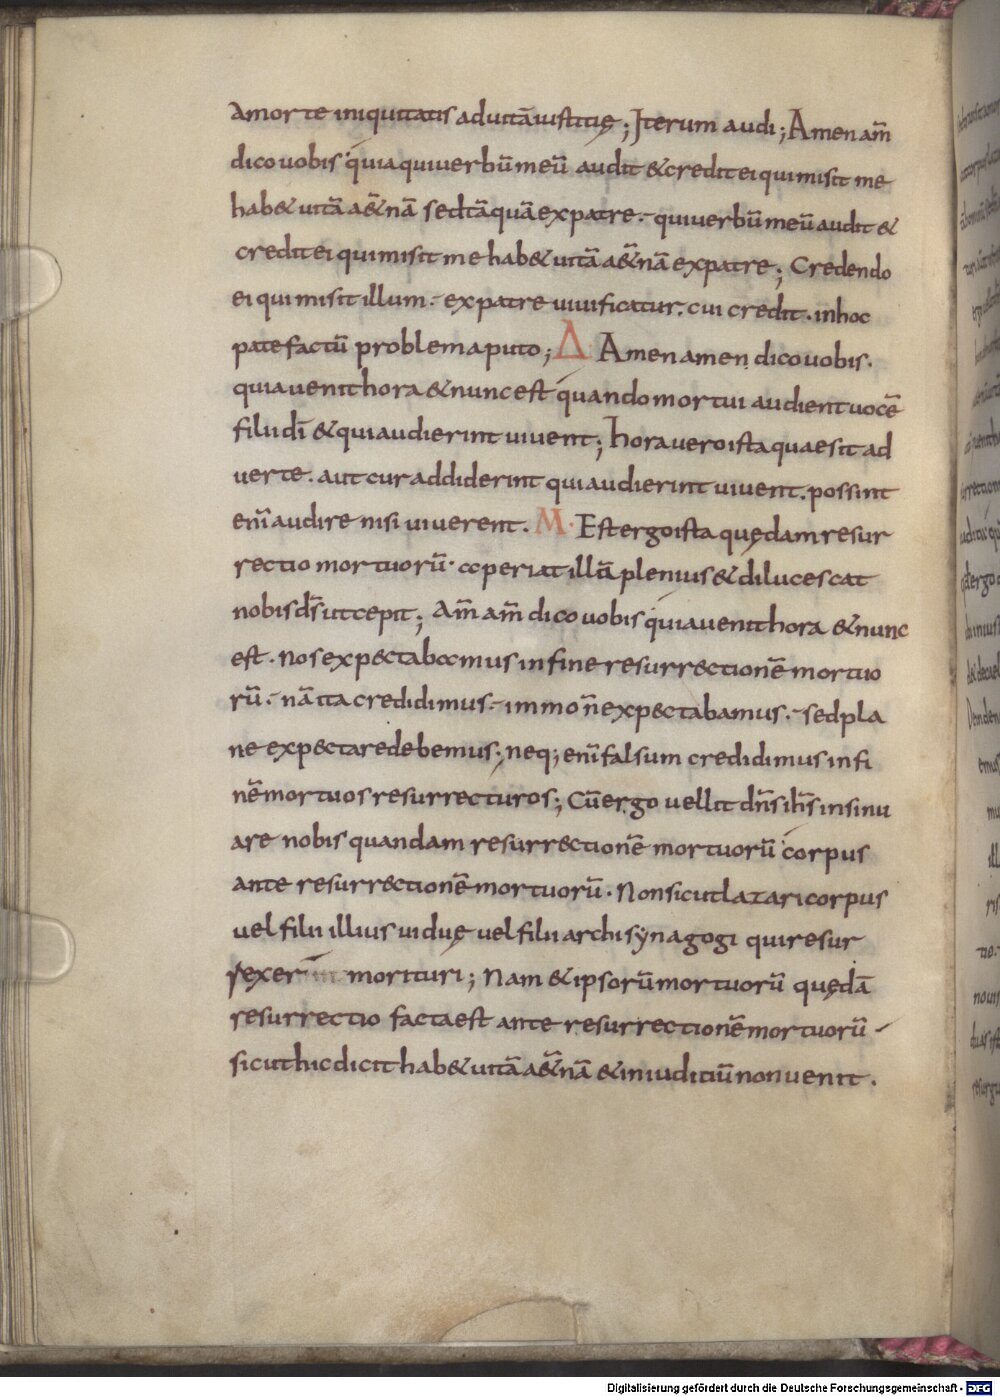 Amorte iniquitatis aduitā iustitię; Iterum audi; Amen am̄
dico uobis quia qui uerbū meū audit & credit ei qui misit me
hab& uitā a&̄nā sed tāquā expatre · qui uerbū meū audit &
credit ei qui misit me hab& uitā a&̄nā expatre; Credendo
ei qui misit illum · expatre uiuificatur · cui credit · inhoc
patefactū problema puto; Δ Amen amen dico uobis ·
quia uenit hora & nunc est quando mortui audient uocē
filii dī & qui audierint uiuent; hora uero ista quae sit ad
uerte · aut cur addiderint qui audierint uiuent · possint
enī audire nisi uiuerent · M · Est ergo ista quędam resur
rectio mortuorū · aperiat illā plenius & dilucescat
nobis dš ut cepit; Am̄ am̄ dico uobis quia uenit hora & nunc
est · Nos expectabamus infine resurrectionē mortuo
rū · nā ita credidimus · immo n̄ expectabamus · sed pla
ne expectare debemus · neq; enī falsum credidimus infi
nē mortuos resurrecturos; Cū ergo uellit dn̄s ih̄s insinu
are nobis quandam resurrectionē mortuorū corpus
ante resurrectionē mortuorū · Non sicut lazari corpus
uel filii illius uiduę uel filii archisynagogi qui resur
rexerint morituri; Nam & ipsorū mortuorū quędā
resurrectio facta est ante resurrectionē mortuorū
sicut hic dicit hab& uitā a&̄nā & in iuditiū non uenit ·
Digitalisierung gefördert durch die Deutsche Forschungsgemeinschaft - DFG